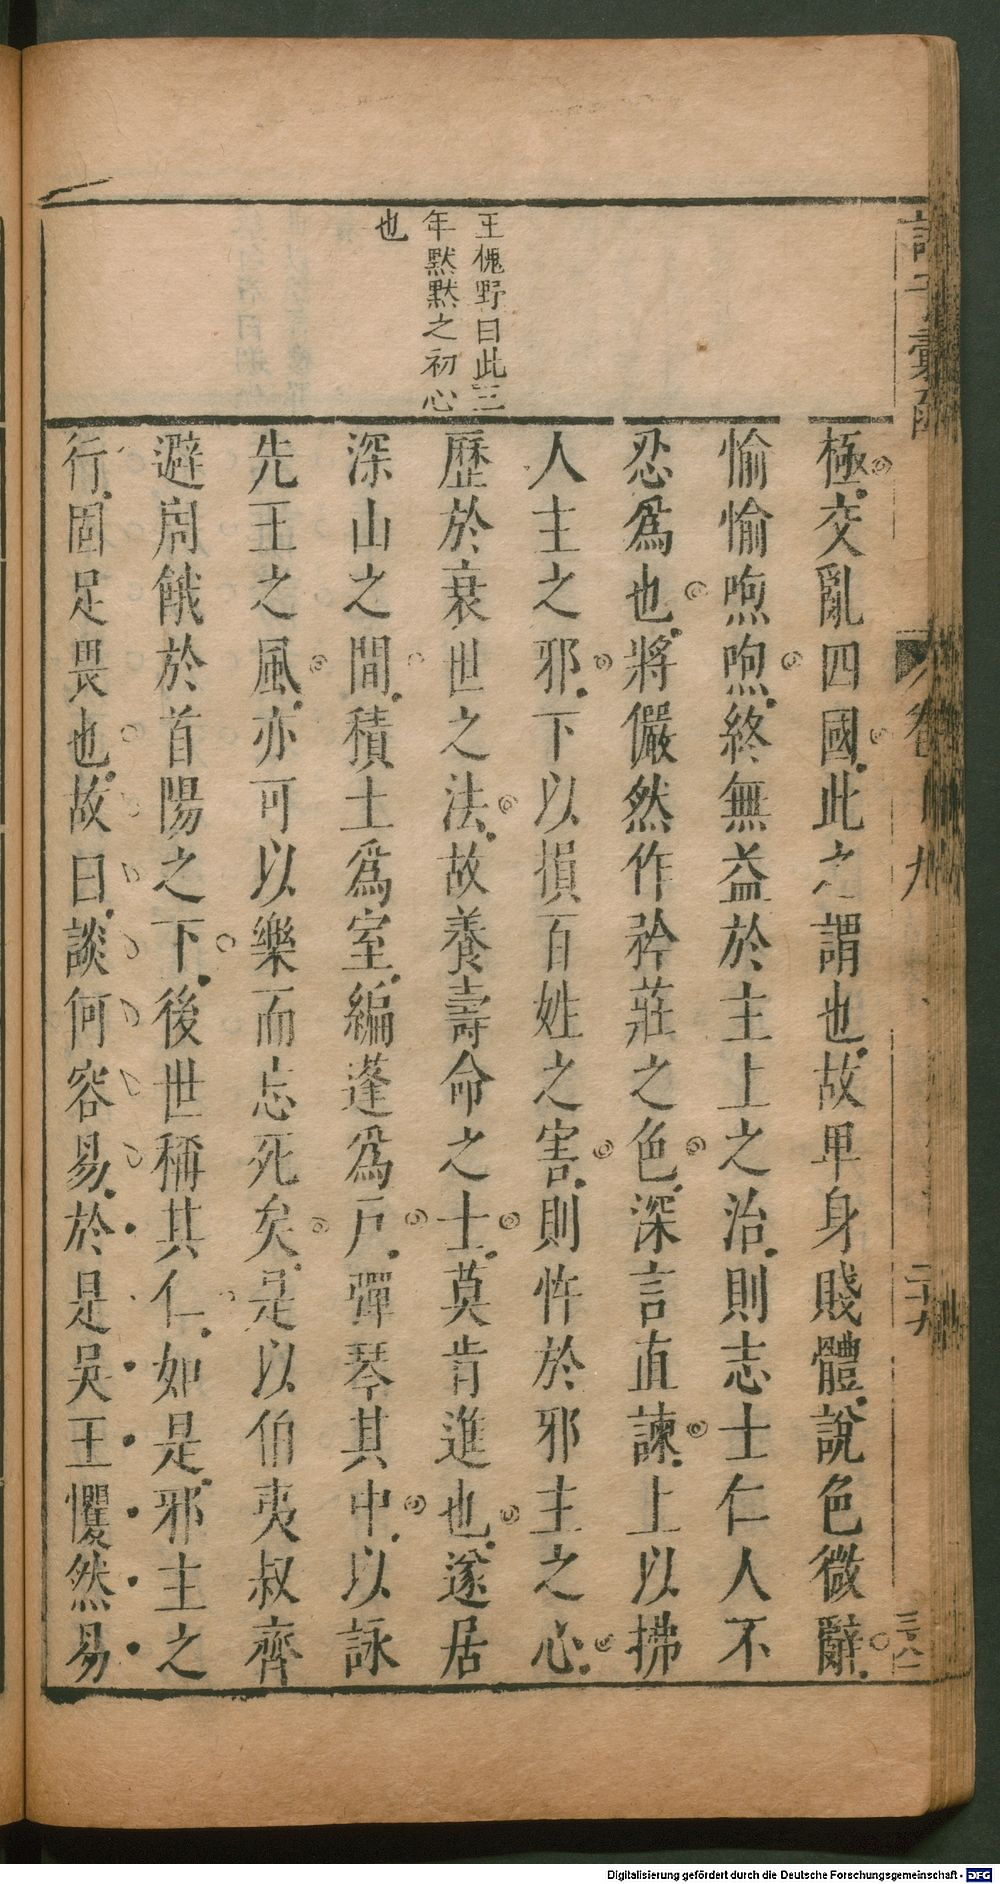 王槐野曰此三
年默默之初心
也
極交亂四國此之謂也故卑身賤體說色微辭
愉愉呴呴終無益於主上之治則志士仁人不
忍爲也將儼然作矜莊之色深言直諫上以拂
人主之邪下以損百姓之害則忤於邪主之心
歷於衰世之法故養壽命之士莫肯進也遂居
深山之間積土爲室編蓬爲戶彈琴其中以詠
先王之風亦可以樂而忘死矣是以伯夷叔齊
避周餓於首陽之下後世稱其仁如是邪主之
行固足畏也故曰談何容易於是吳王懼然易
卷
二十九
三百八
Digitalisierung gefördert durch die Deutsche Forschungsgemeinschaft - DFG